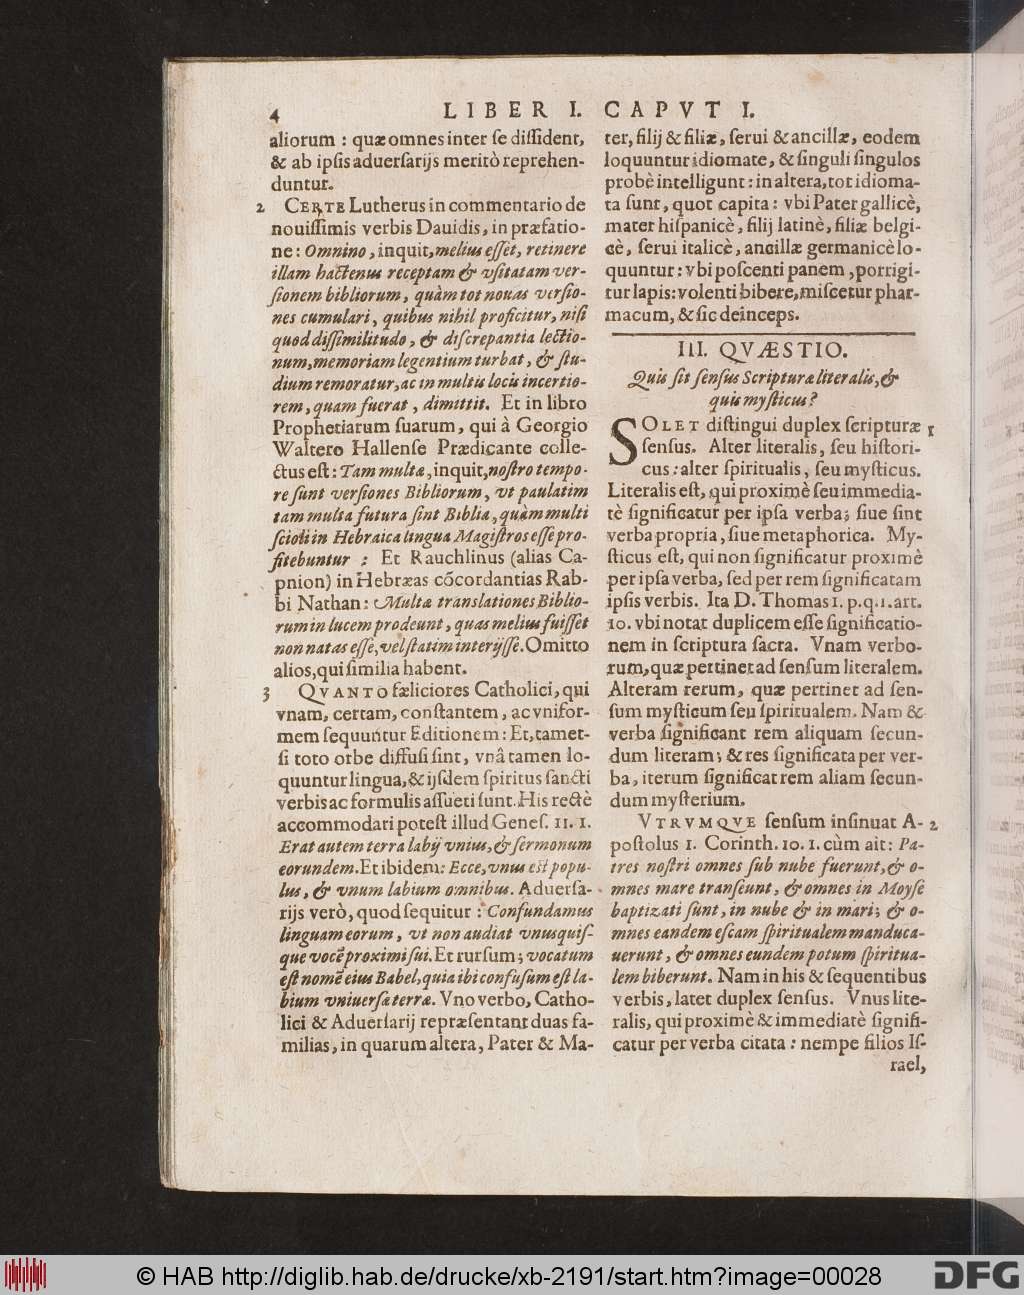 4 LIBER I. CAPVT I.
aliorum : quæ omnes inter ſe diſſident,
& ab ipſis aduerſarijs meritò reprehen-
duntur.
2 CERTE Lutherus in commentario de
nouiſſimis verbis Dauidis, in præfatio-
ne : Omnino, inquit, melius eſſet, retinere
illam hactenus receptam & vſitatam ver-
ſionem bibliorum, quàm tot nouas verſio-
nes cumulari, quibus nihil proficitur, niſi
quod diſſimilitudo, & diſcrepantia lectio-
num, memoriam legentium turbat, & ſtu-
dium remoratur, ac in multis locis incertio-
rem, quam fuerat, dimittit. Et in libro
Prophetiarum ſuarum, qui à Georgio
Waltero Hallenſe Prædicante colle-
ctus eſt : Tam multæ, inquit, noſtro tempo-
re ſunt verſiones Bibliorum, vt paulatim
tam multa futura ſint Biblia, quàm multi
ſcioli in Hebraica lingua Magiſtros eſſe pro-
fitebuntur : Et Rauchlinus (alias Ca-
pnion) in Hebræas cōcordantias Rab-
bi Nathan : Multæ translationes Biblio-
rum in lucem prodeunt, quas melius fuiſſet
non natas eſſe, vel ſtatim interijſſe. Omitto
alios, qui ſimilia habent.
3 QVANTO fæliciores Catholici, qui
vnam, certam, conſtantem, ac vnifor-
mem ſequuntur Editionem : Et, tamet-
ſi toto orbe diffuſi ſint, vnâ tamen lo-
quuntur lingua, & ijſdem ſpiritus ſancti
verbis ac formulis aſſueti ſunt. His rectè
accommodari poteſt illud Geneſ. 11. 1.
Erat autem terra labij vnius, & ſermonum
eorundem. Et ibidem : Ecce, vnus eſt popu-
lus, & vnum labium omnibus. Aduerſa-
rijs verò, quod ſequitur : Confundamus
linguam eorum, vt non audiat vnusquiſ-
que vocē proximi ſui. Et rurſum ; vocatum
eſt nomē eius Babel, quia ibi confuſum eſt la-
bium vniuerſæ terræ. Vno verbo, Catho-
lici & Aduerſarij repræſentant duas fa-
milias, in quarum altera, Pater & Ma-
ter, filij & filiæ, ſerui & ancillæ, eodem
loquuntur idiomate, & ſinguli ſingulos
probè intelligunt : in altera, tot idioma-
ta ſunt, quot capita : vbi Pater gallicè,
mater hiſpanicè, filij latinè, filiæ belgi-
cè, ſerui italicè, ancillæ germanicè lo-
quuntur : vbi poſcenti panem, porrigi-
tur lapis : volenti bibere, miſcetur phar-
macum, & ſic deinceps.
III. QVÆSTIO.
Quis ſit ſenſus Scripturæ literalis, &
quis myſticus?
SOLET diſtingui duplex ſcripturæ 1
ſenſus. Alter literalis, ſeu hiſtori-
cus : alter ſpiritualis, ſeu myſticus.
Literalis eſt, qui proximè ſeu immedia-
tè ſignificatur per ipſa verba ; ſiue ſint
verba propria, ſiue metaphorica. My-
ſticus eſt, qui non ſignificatur proximè
per ipſa verba, ſed per rem ſignificatam
ipſis verbis. Ita D. Thomas 1. p. q. 1. art.
10. vbi notat duplicem eſſe ſignificatio-
nem in ſcriptura ſacra. Vnam verbo-
rum, quæ pertinet ad ſenſum literalem.
Alteram rerum, quæ pertinet ad ſen-
ſum myſticum ſeu ſpiritualem. Nam &
verba ſignificant rem aliquam ſecun-
dum literam ; & res ſignificata per ver-
ba, iterum ſignificat rem aliam ſecun-
dum myſterium.
VTRVMQVE ſenſum inſinuat A- 2
poſtolus 1. Corinth. 10. 1. cùm ait : Pa-
tres noſtri omnes ſub nube fuerunt, & o-
mnes mare tranſeunt, & omnes in Moyſe
baptizati ſunt, in nube & in mari ; & o-
mnes eandem eſcam ſpiritualem manduca-
uerunt, & omnes eundem potum ſpiritua-
lem biberunt. Nam in his & ſequentibus
verbis, latet duplex ſenſus. Vnus lite-
ralis, qui proximè & immediatè ſignifi-
catur per verba citata : nempe filios Iſ-
rael,
© HAB http://diglib.hab.de/drucke/xb-2191/start.htm?image=00028
DFG